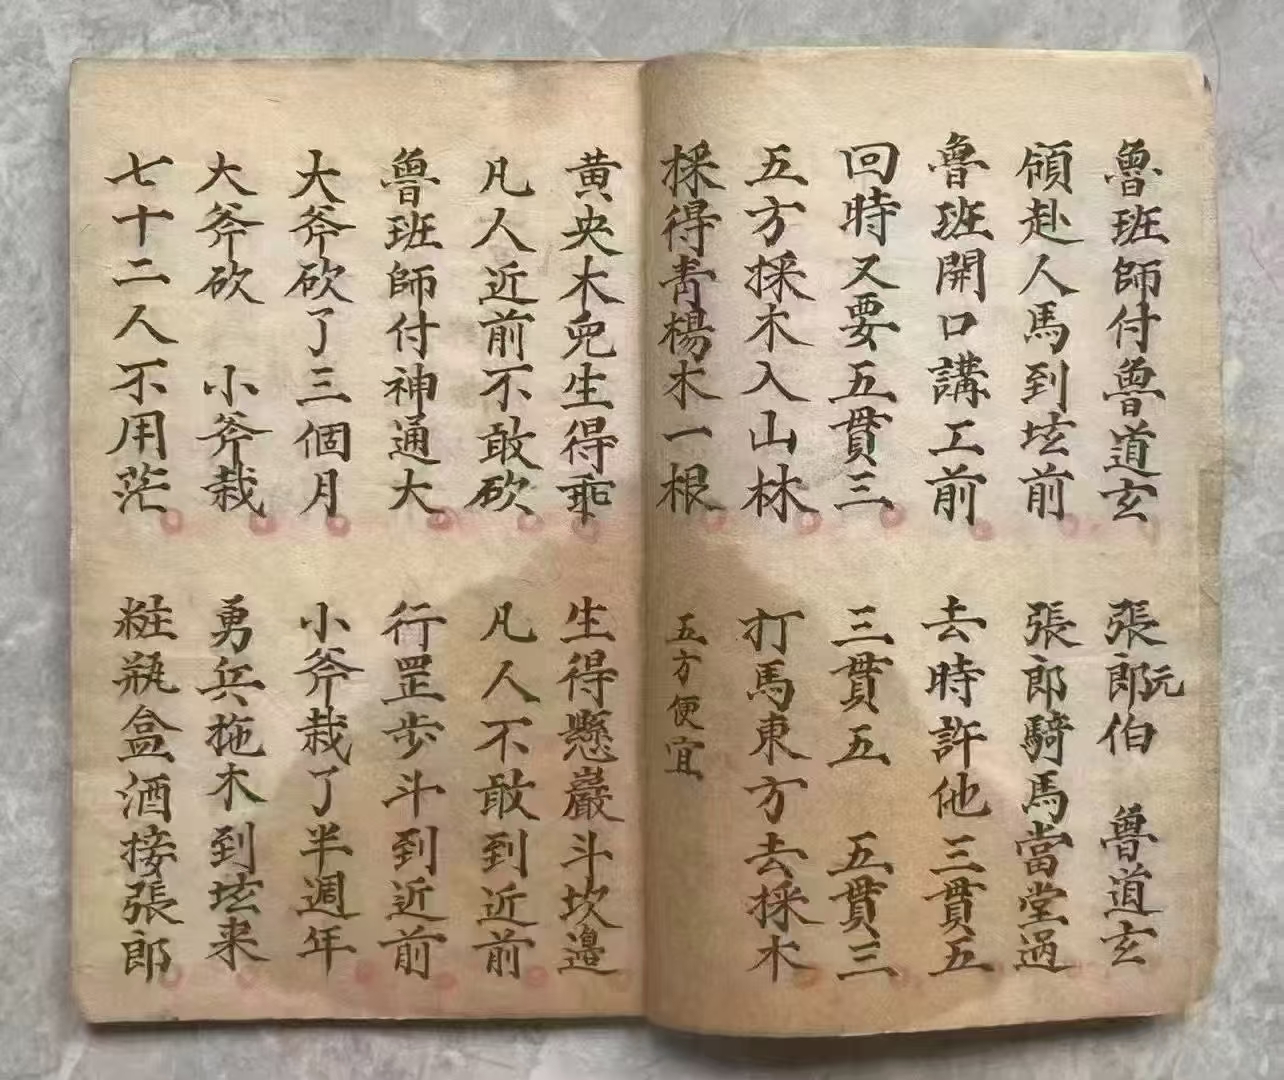 魯班師付魯道玄 張郎阮伯 魯道玄
領赴人馬到坛前 張郎騎馬當堂過
魯班開口講工前 去時許他三貫五
回時又要五貫三 三貫五 五貫三
五方採木入山林 打馬東方去採木
採得青楊木一根 五方便宜
黄央木児生得乖 生得懸巖斗坎邊
凡人近前不敢砍 凡人不敢到近前
魯班師付神通大 行罡步斗到近前
大斧砍了三個月 小斧栽了半週年
大斧砍 小斧栽 勇兵拖木到坛来
七十二人不用茫 粧瓶盒酒接張郎